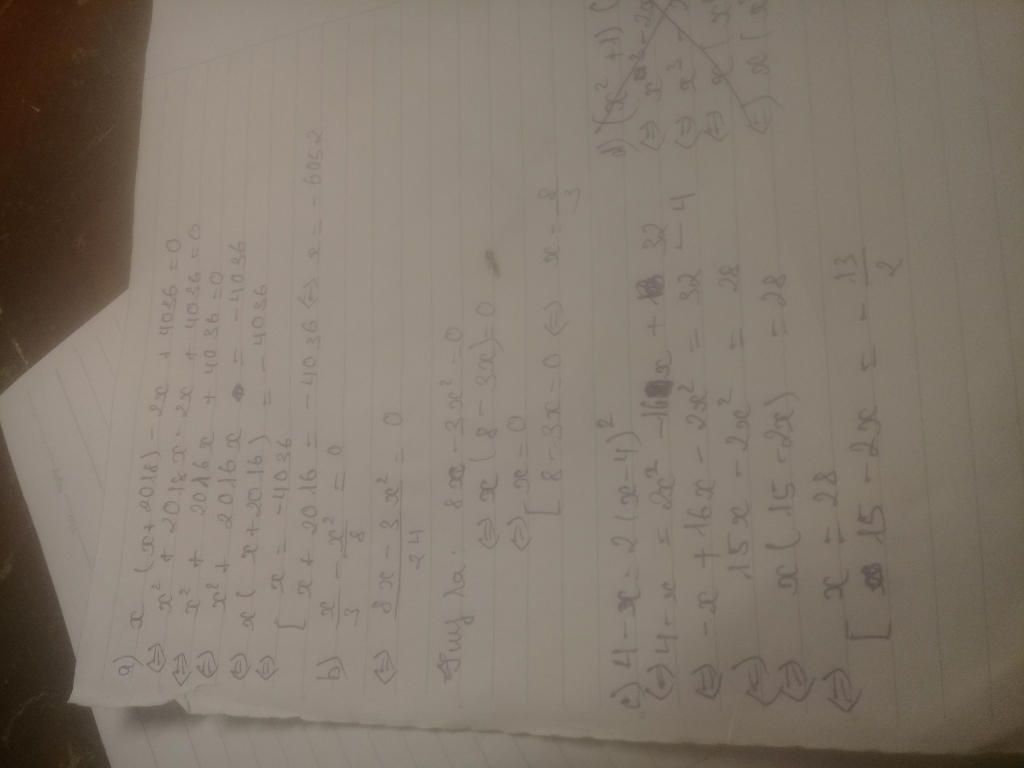 a) x(x+2018) - 2x + 4036 = 0
⇔ x² + 2018x - 2x + 4036 = 0
⇔ x² + 2016x + 4036 = 0
⇔ x² + 2016x = -4036
⇔ x(x+2016) = -4036
⇔ [ x = -4036
x + 2016 = -4036 ⇔ x = -6052
b) x/3 - x²/8 = 0
⇔ (8x - 3x²)/24 = 0
8x - 3x² = 0
⇔ x(8 - 3x) = 0
⇔ [ x = 0
8 - 3x = 0 ⇔ x = 8/3
c) 4 - x = 2(x-4)²
⇔ 4 - x = 2x² - 16x + 32
⇔ -x + 16x - 2x² = 32 - 4
⇔ 15x - 2x² = 28
⇔ x(15 - 2x) = 28
⇔ [ x = 28
15 - 2x = -13/2